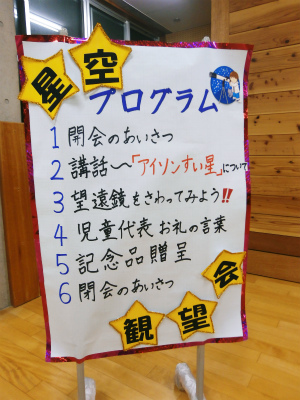 星空
プログラム
1 開会のあいさつ
2 講話〜「アイソンすい星」について
3 望遠鏡をさわってみよう!!
4 児童代表 お礼の言葉
5 記念品贈呈
6 閉会のあいさつ
観望会